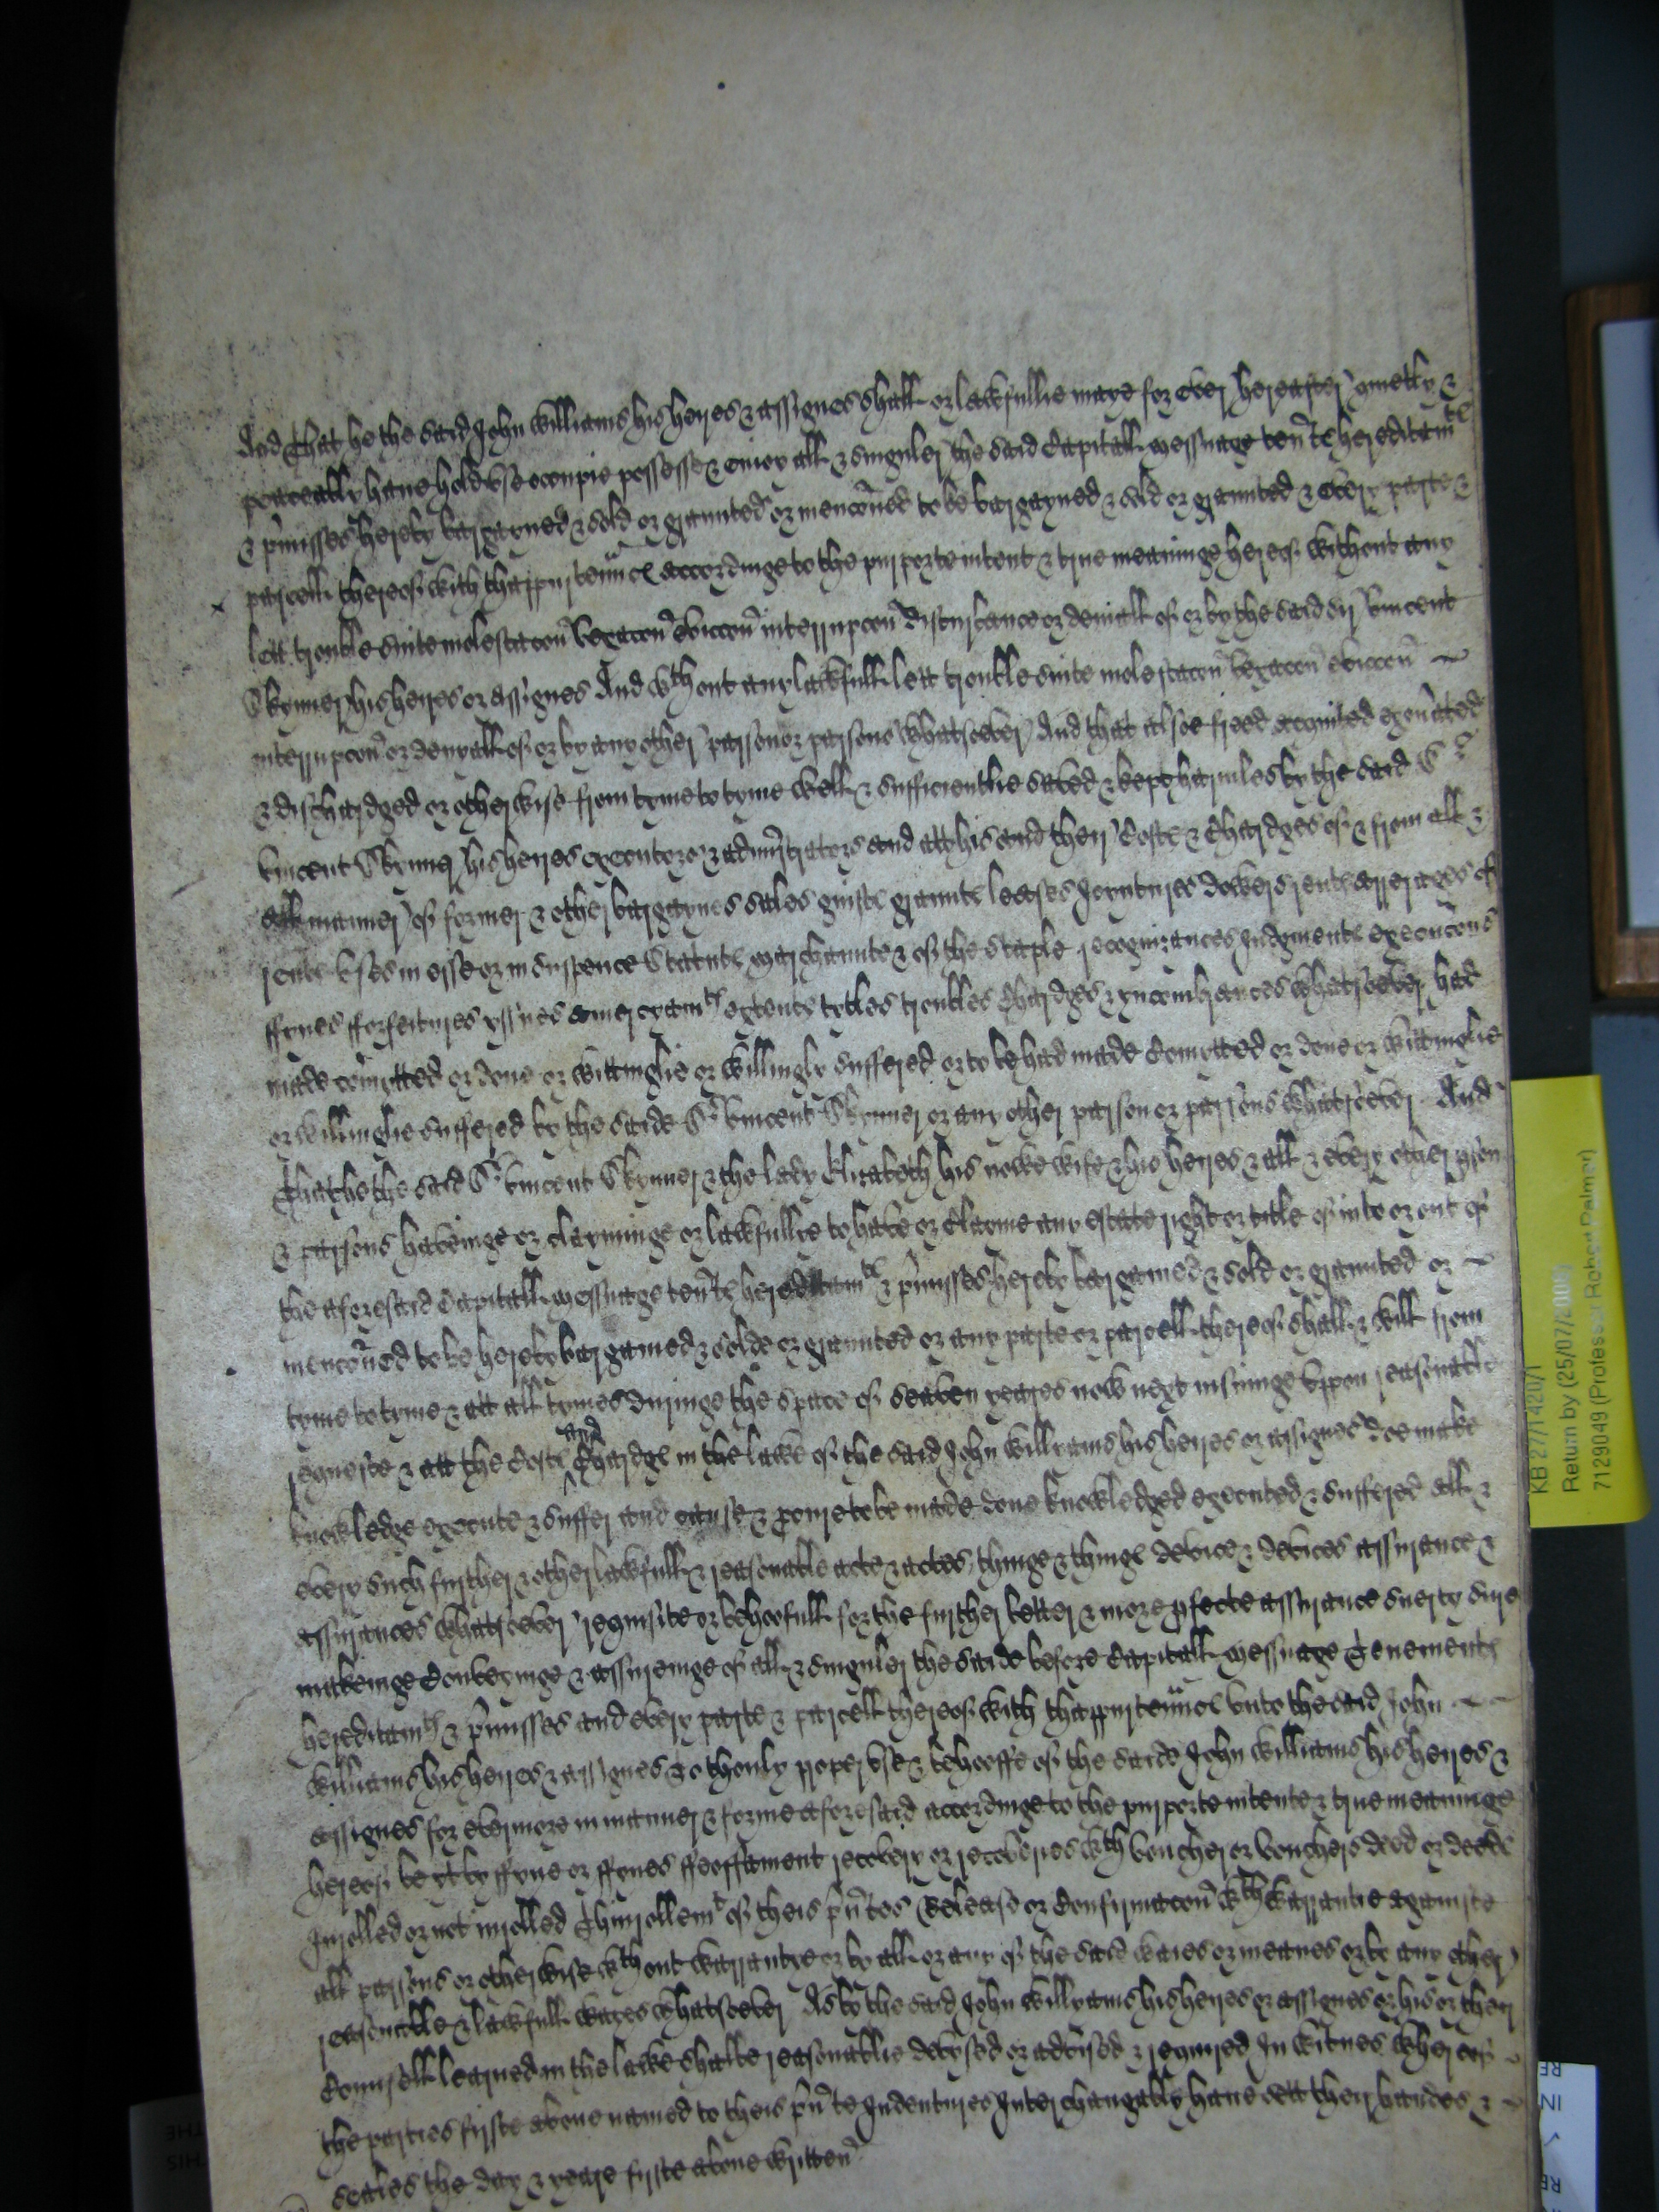 And that he the said John Williams his heires & assignes shall or lawfullie maye for ever hereafter quietly &
peaceably have hold use occupie possesse & enioy all & singuler the said Capitall messuage ten'tes hereditamtes
& p'misses hereby bargayned & sold or graunted or menc'oned to be bargayned & sold or graunted & every parte &
parcell thereof with thappurten'nces accordinge to the purporte intent & true meaninge hereof without any
lett trouble suite molestac'on vexac'on evicc'on interrupc'on disturbance or deniall of or by the said Sir Vincent
Skynner his heires or assignes And wthout any lawfull lett trouble suite molestac'on vexac'on evicc'on
interrupc'on or denyall of or by any other parson or parsons whatsoever And that alsoe freed acquited exon'ated
& dischardged or otherwise from tyme to tyme well & sufficientlie saved & kept harmles by the said Sr
Vincent Skynner his heires executors & admi'strators and att his and their Costes & Chardges of & from all &
all manner of former & other bargaynes sales guiftes grauntes leases Joyntures dowers rentes arrerages of
rentes uses in esse or in suspence Statutes marchaunte & of the staple recognizances Judgmentes execuc'ons
ffynes fforfeitures yssues amercyamtes extents tytles troubles Chardges & yncombrances whatsoever had
made comytted or done or wittinglie or willingly suffered or to be had made Comytted or done or wittinglie
or willinglie suffered by the saide Sr Vincent Skynner or any other parson or parsons whatsoever And
that he the said Sr Vincent Skynner & the lady Elizabeth his nowe wife & his heires & all & every other p'son
& parsons haveinge or clayminge or lawfullie to have or Clayme any estate right or title of into or out of
the aforesaid Capitall messuage ten'tes hereditamtes & p'misses hereby bargained & sold or graunted or
menc'oned to be hereby bargained & solde or graunted or any parte or parcell thereof shall & will from
tyme to tyme & att all tymes duringe the space of seaven yeares now next insuinge uppon reasonable
requeste & att the Costes and Chardges in the lawe of the said John Willyams his heires or assignes doe make
knowledge execute & suffer and cause & p'cure to be made done knowledged executed & suffered all &
every such further & other lawfull & reasonable acte & actes thinge & thinges device & devices assurance &
assurances whatsoever requisite or behoofull for the further better & more p'fecte assurance suerty sure
makeinge Conveyinge & assureinge of all & singuler the saide before Capitall messuage Tenementes
hereditamtes & p'misses and every parte & parcell thereof with thappurten'nces unto the said John
Williams his heires & assignes To thonly proper use & behooffe of the saide John Williams his heires &
assignes for evermore in manner & forme aforesaid accordinge to the purporte intente & true meaninge
hereof be yt by ffyne or ffynes ffeoffament recovery or recoveries wth voucher or vouchers deed or deedes
Inrolled or not inrolled Thinrollemt of theis p'ntes Release or Confirmac'on wth warrantie againste
all parsons or otherwise wthout warrantye or by all or any of the said waies or meanes or by any other
reasonable & lawfull wayes whatsoever As by the said John Willyams his heires or assignes or his or their
Counsell learned in the lawe shalbe reasonablie devysed or advised & required In witnes whereof
the parties firste above named to theis p'nte Indentures Interchangably have sett their handes &
seales the day & yeare firste above written
KB 27/1420/1
Return by (25/07/2008)
7129049 (Professor Robert Palmer)